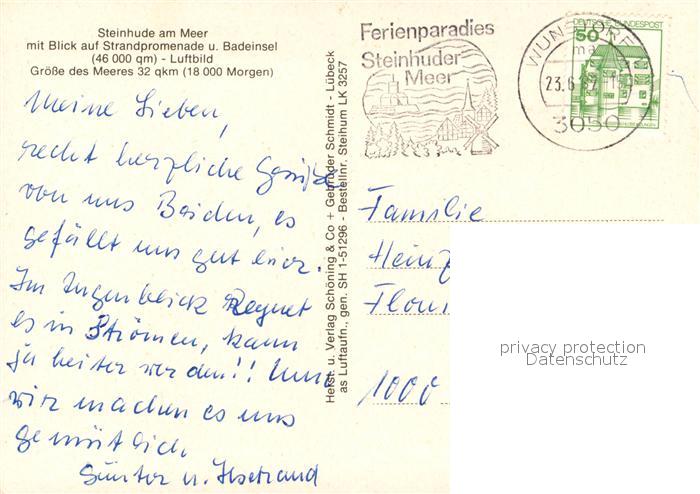 Steinhude am Meer
mit Blick auf Strandpromenade u. Badeinsel
(46 000 qm) - Luftbild
Größe des Meeres 32 qkm (18 000 Morgen)
Meine Lieben,
recht herzliche Grüße
von uns Beiden, es
gefällt uns gut hier.
Im Augenblick Regnet
es in Strömen, kann
ja heiter werden!! Unn
wir machen es uns
gemütlich.
Günter u.
Herst. u. Verlag Schöning & Co + Gebrüder Schmidt - Lübeck
as Luftaufn., gen. SH 1-51296 - Bestellnr. Steihum LK 3257
Ferienparadies
Steinhuder
Meer
WUNSTORF
23.6.82
3050
DEUTSCHE BUNDESPOST
50
Familie
Heinz
1000
privacy protection
Datenschutz